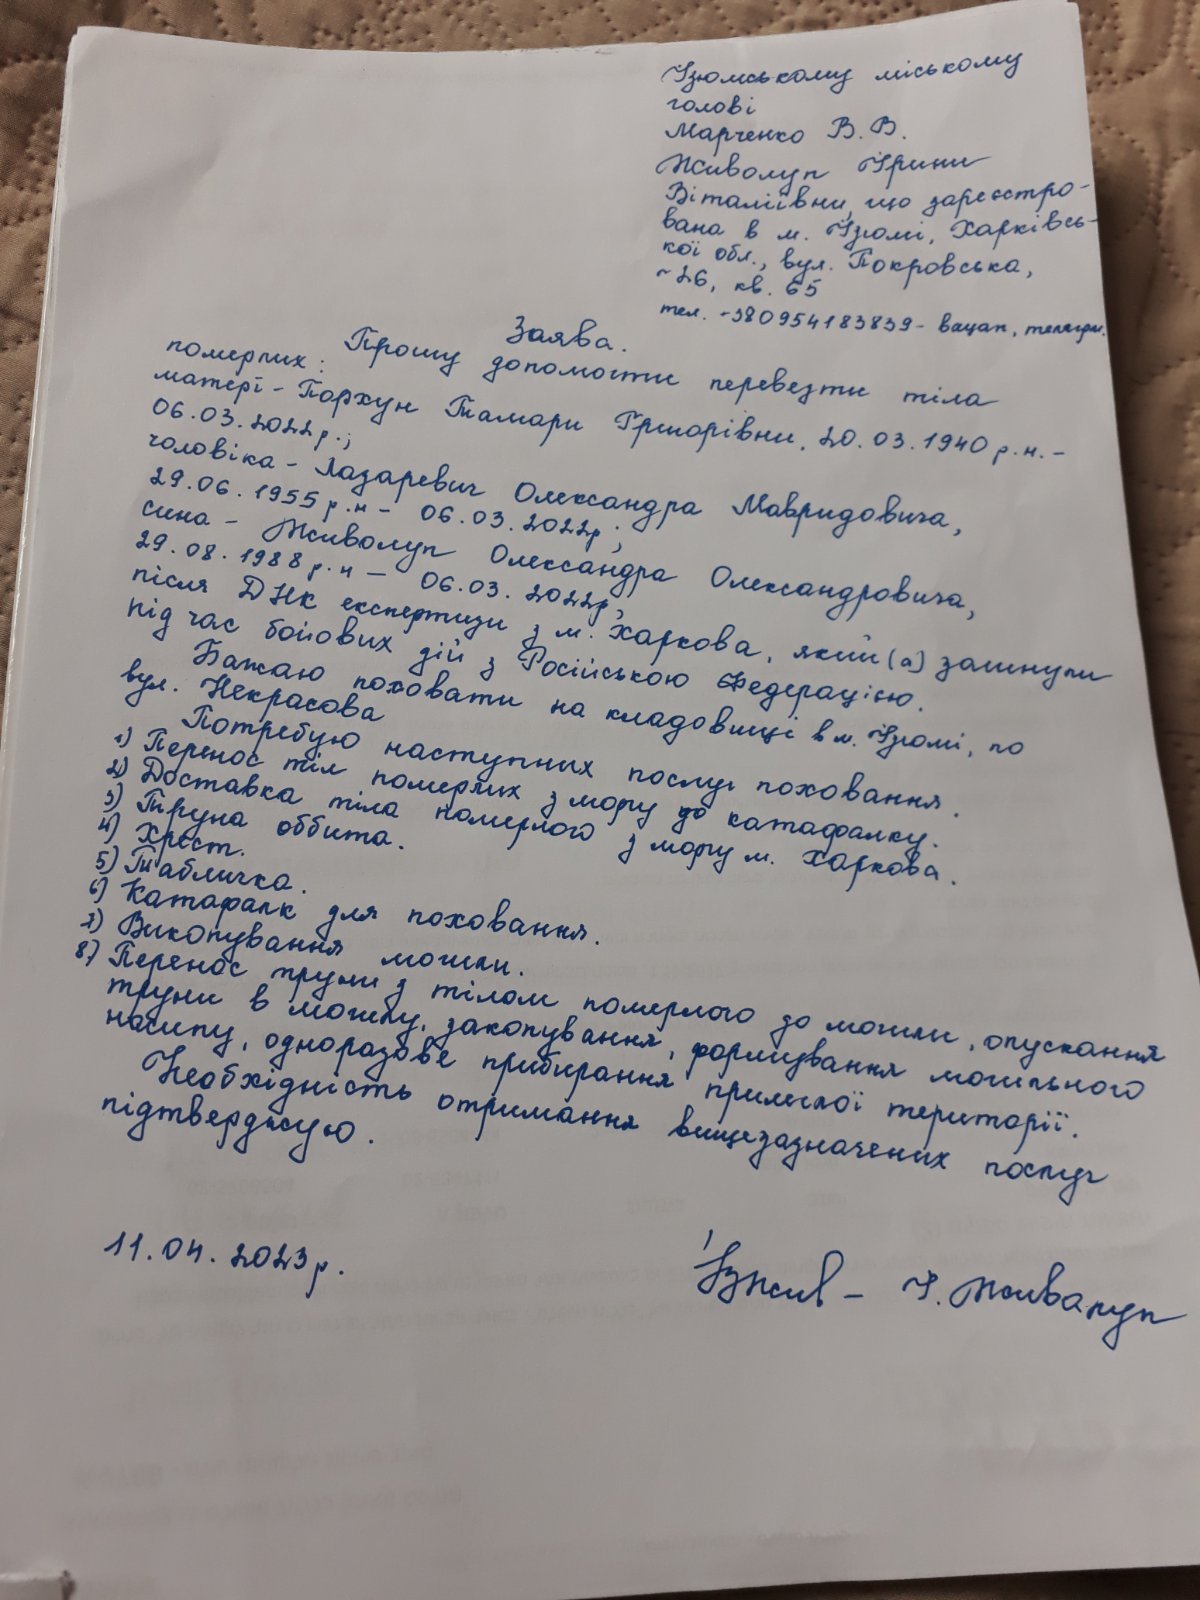 Ізюмському міському
голові
Марченко В. В.
Живолуп Ірини
Віталіївни, що зареєстро-
вана в м. Ізюмі, Харківсь-
кої обл., вул. Покровська,
26, кв. 65
тел. +380954183839 - вацап, телегрм.
Заява.
Прошу допомогти перевезти тіла
померлих:
матері - Пархун Тамари Григорівни, 20.03.1940 р.н. -
06.03.2022р.;
чоловіка - Лазаревич Олександра Мавридовича,
29.06.1955 р.н - 06.03.2022р;
сина - Живолуп Олександра Олександровича,
29.08.1988 р.н - 06.03.2022р,
після ДНК експертизи з м. Харкова, який(а) загинули
під час бойових дій з Російською Федерацією.
Бажаю поховати на кладовищі в м. Ізюмі, по
вул. Некрасова
Потребую наступних послуг поховання.
1) Перенос тіл померлих з моргу до катафалку.
2) Доставка тіла померлого з моргу м. Харкова.
3) Труна оббита.
4) Хрест.
5) Табличка.
6) Катафалк для поховання.
7) Викопування могили.
8) Перенос труни з тілом померлого до могили, опускання
труни в могилу, закопування, формування могильного
насипу, одноразове прибирання прилеглої території.
Необхідність отримання вищезазначених послуг
підтверджую.
11.04.2023р.
І. Живолуп